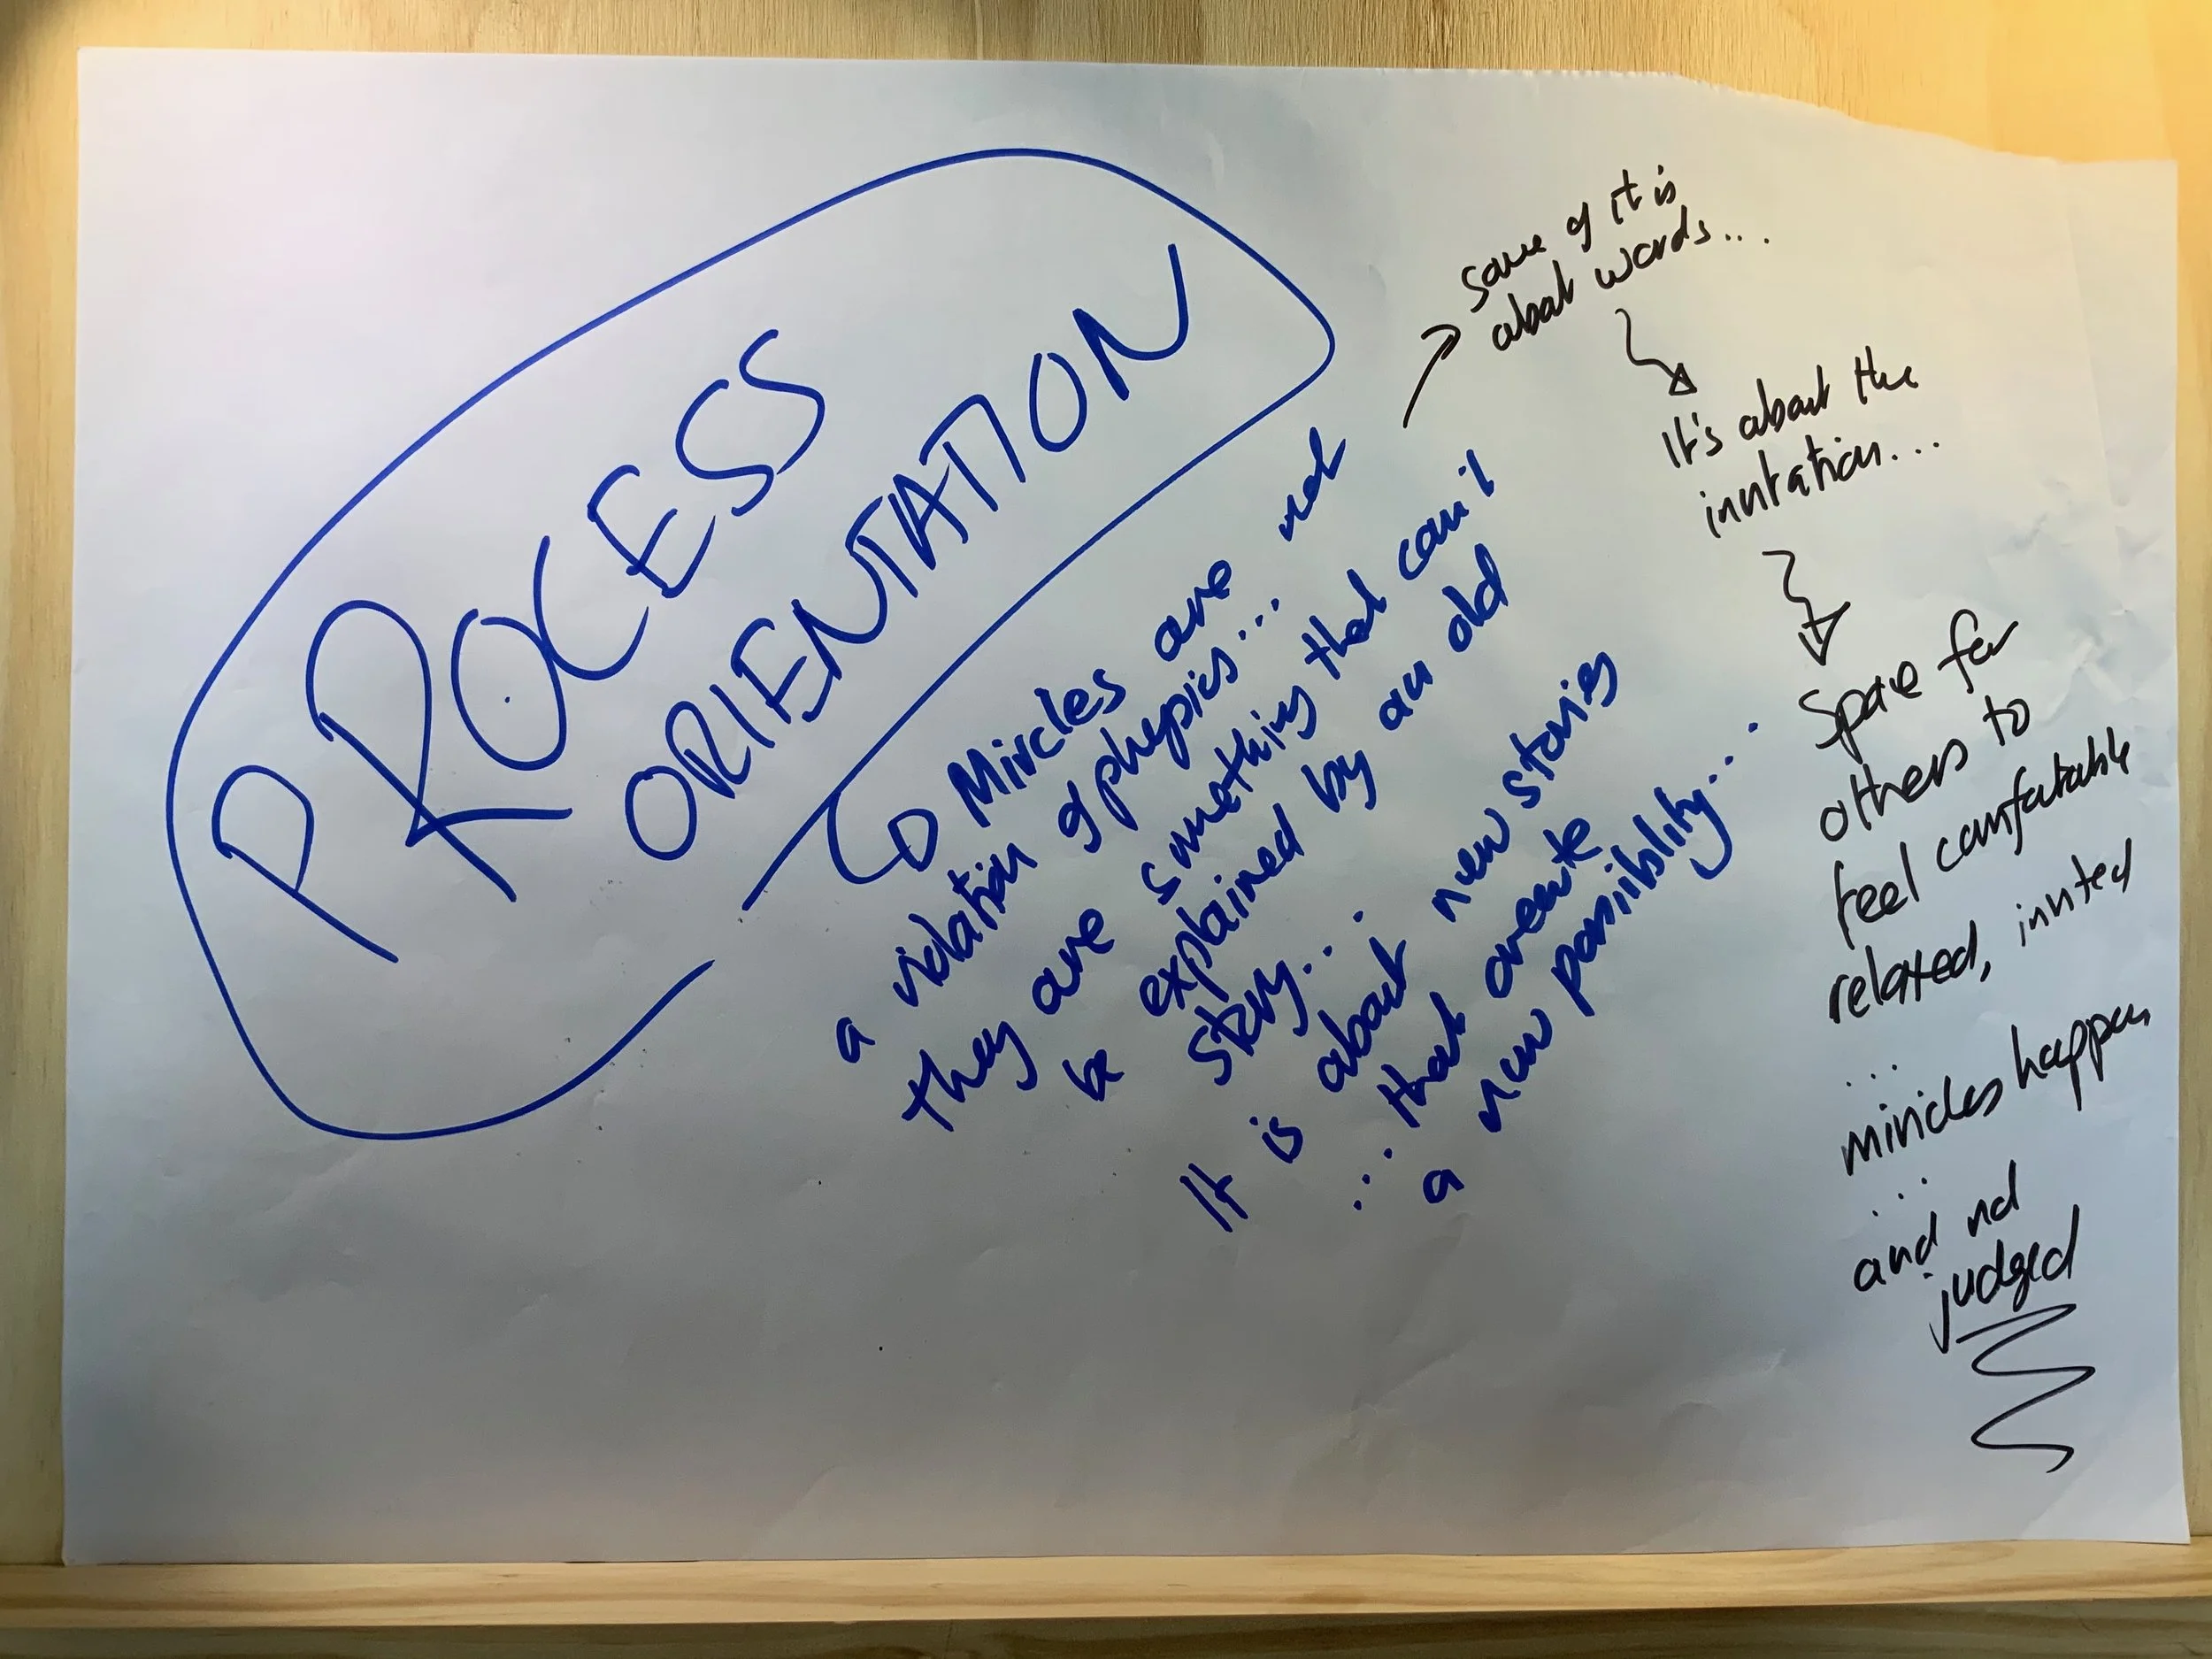 PROCESS
ORIENTATION
Mircles are not
a violation of phypics...
they are something that can't
be explained by an old
story...
It is about new stories
...that create
a new possibility...
some of it is
about words...
It's about the
invitation...
Space for
others to
feel comfortable
relaxed, invited
...
miricles happen
...
and not
judged